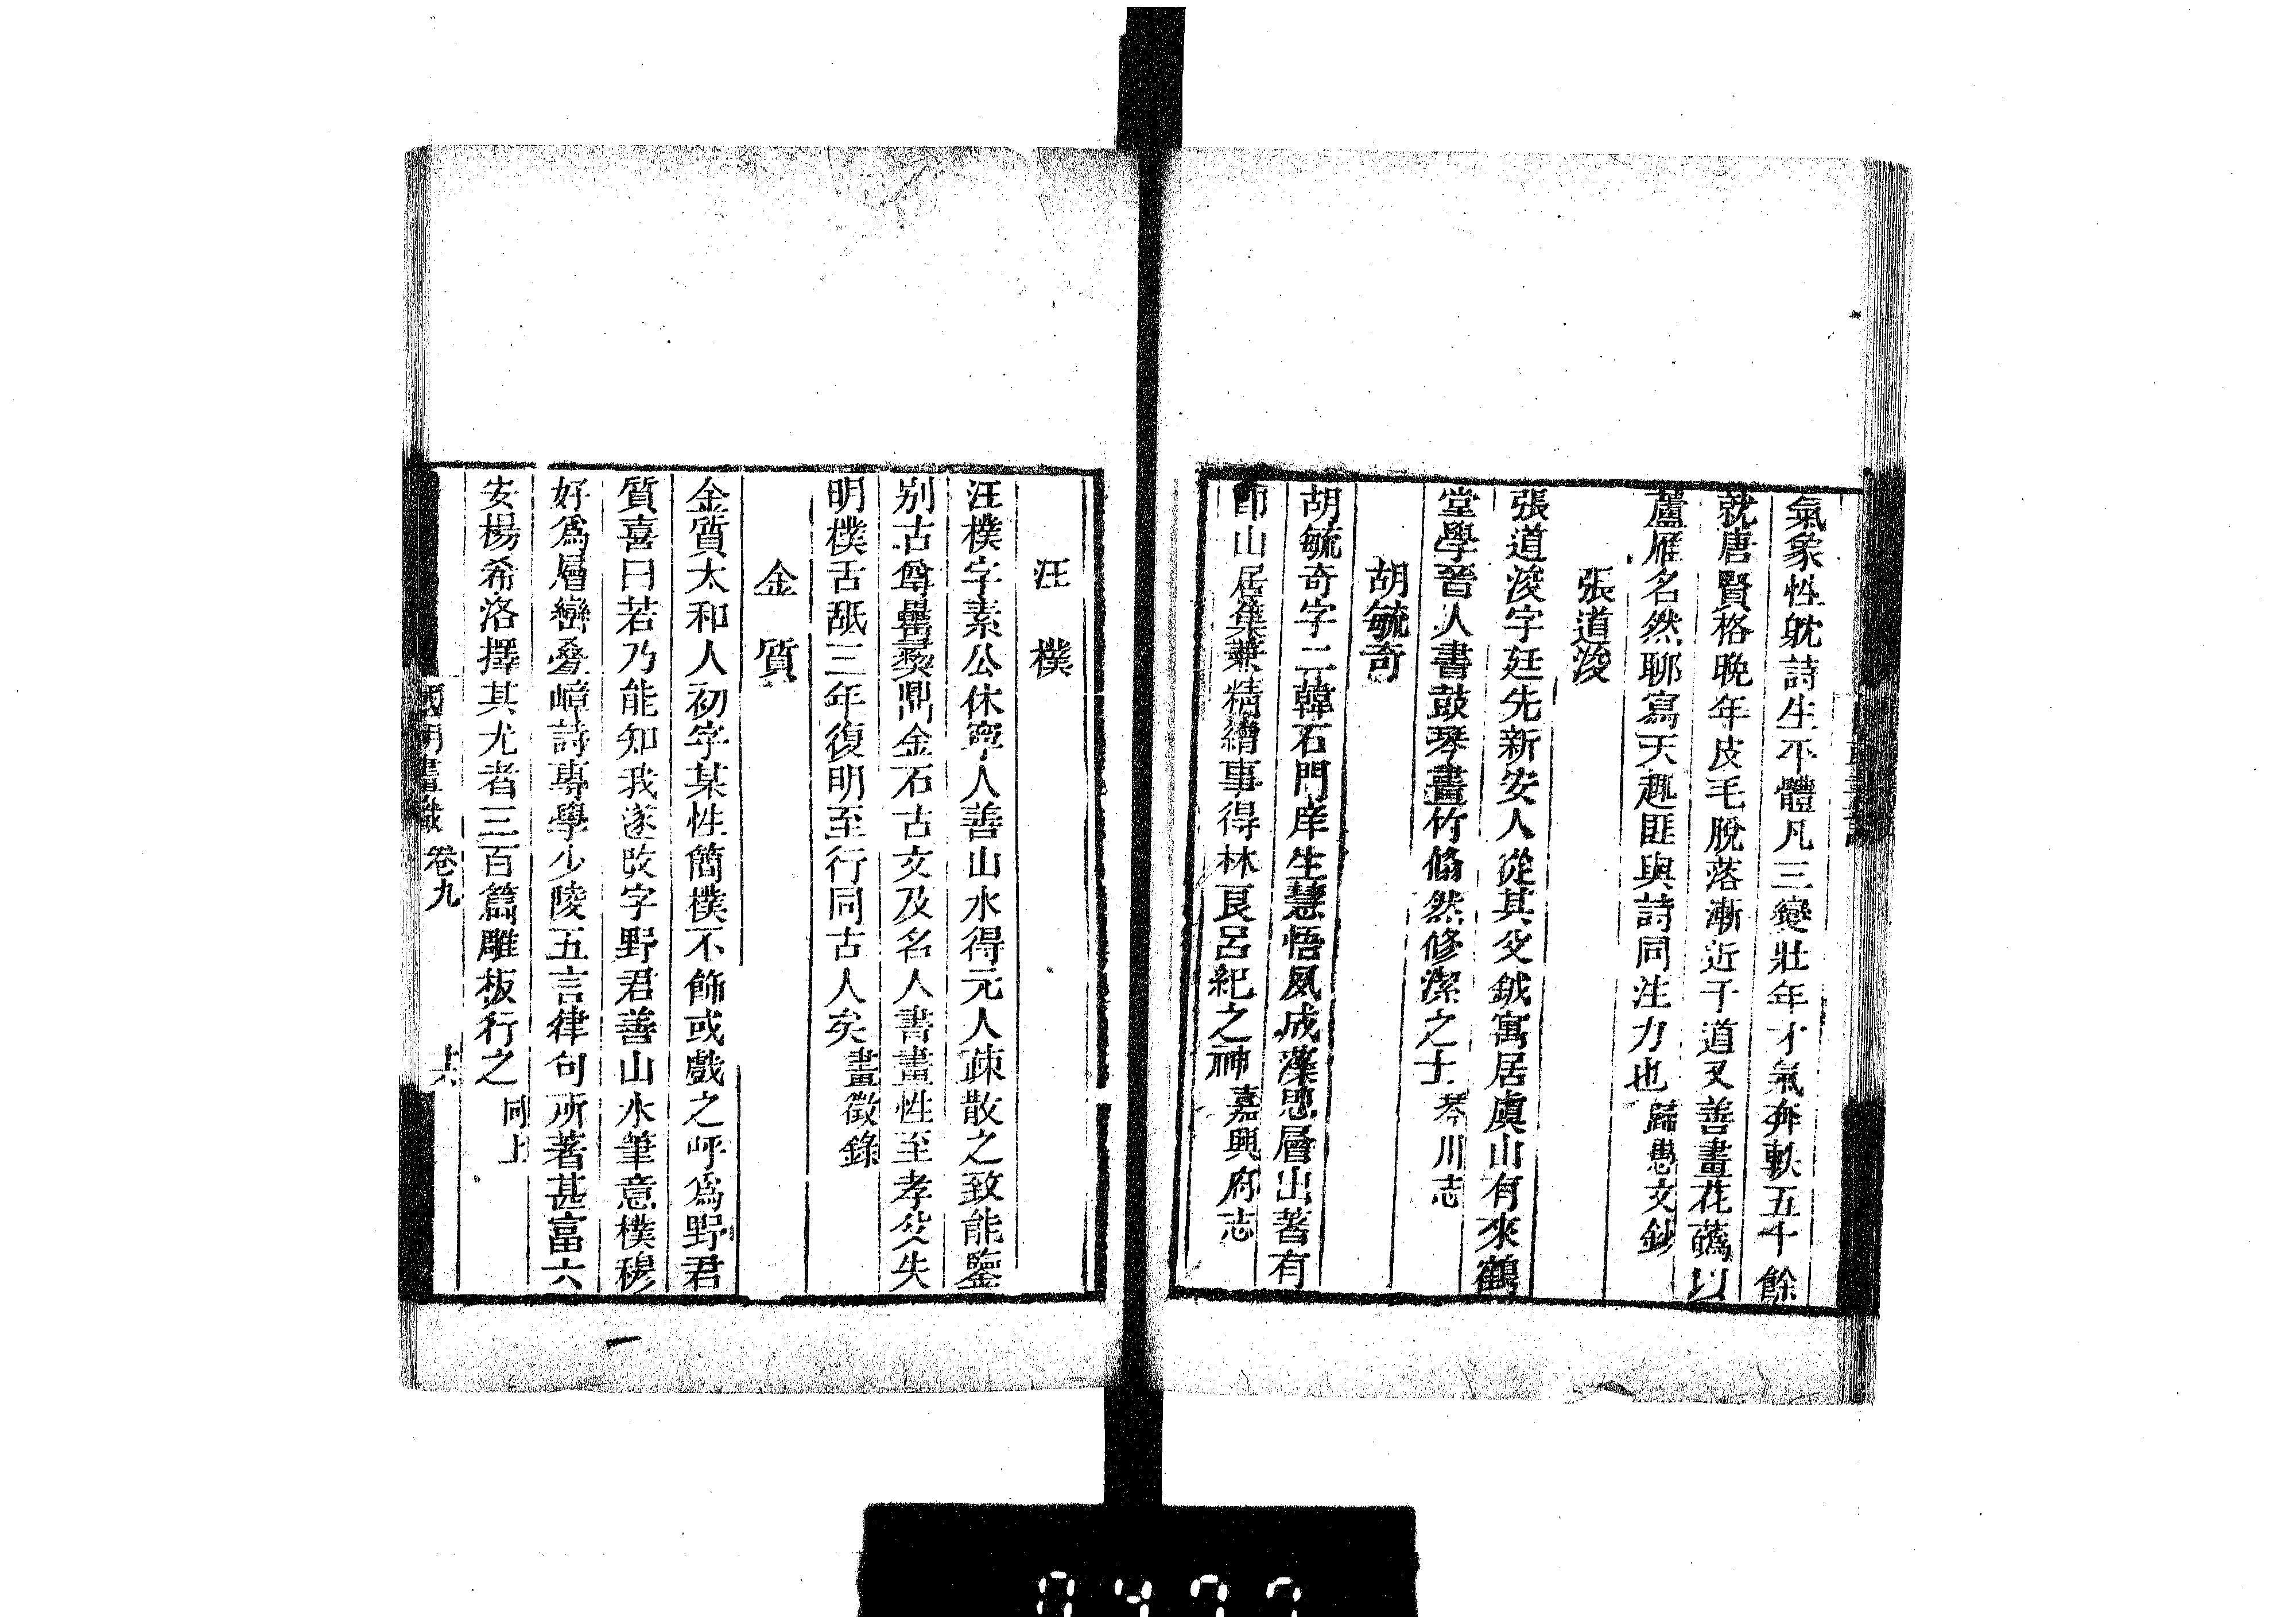 氣象性躭詩生平體凡三變壯年才氣奔軼五十餘
就唐賢格晩年皮毛脫落漸近于道又善畫花蘤以
蘆雁名然聊寫天趣匪與詩同注力也歸愚文鈔
張道浚
張道浚字廷先新安人從其父鉞寓居虞山有來鶴
堂學晉人書鼓琴畫竹翛然修潔之士琴川志
胡毓奇
胡毓奇字二韓石門庠生慧悟夙成藻思層出著有
卽山居集兼精繪事得林良呂紀之神嘉興府志
汪樸
汪樸字素公休寧人善山水得元人疎散之致能鑒
别古尊罍彛鼎金石古文及名人書畫性至孝父失
明樸舌舐三年復明至行同古人矣畫徵錄
金質
金質太和人初字某性簡樸不飾或戲之呼爲野君
質喜曰若乃能知我遂改字野君善山水筆意樸穆
好爲層巒疊嶂詩專學少陵五言律句所著甚富六
安楊希洛擇其尤者三百篇雕板行之同上
國朝畫識 卷九 十六
0477